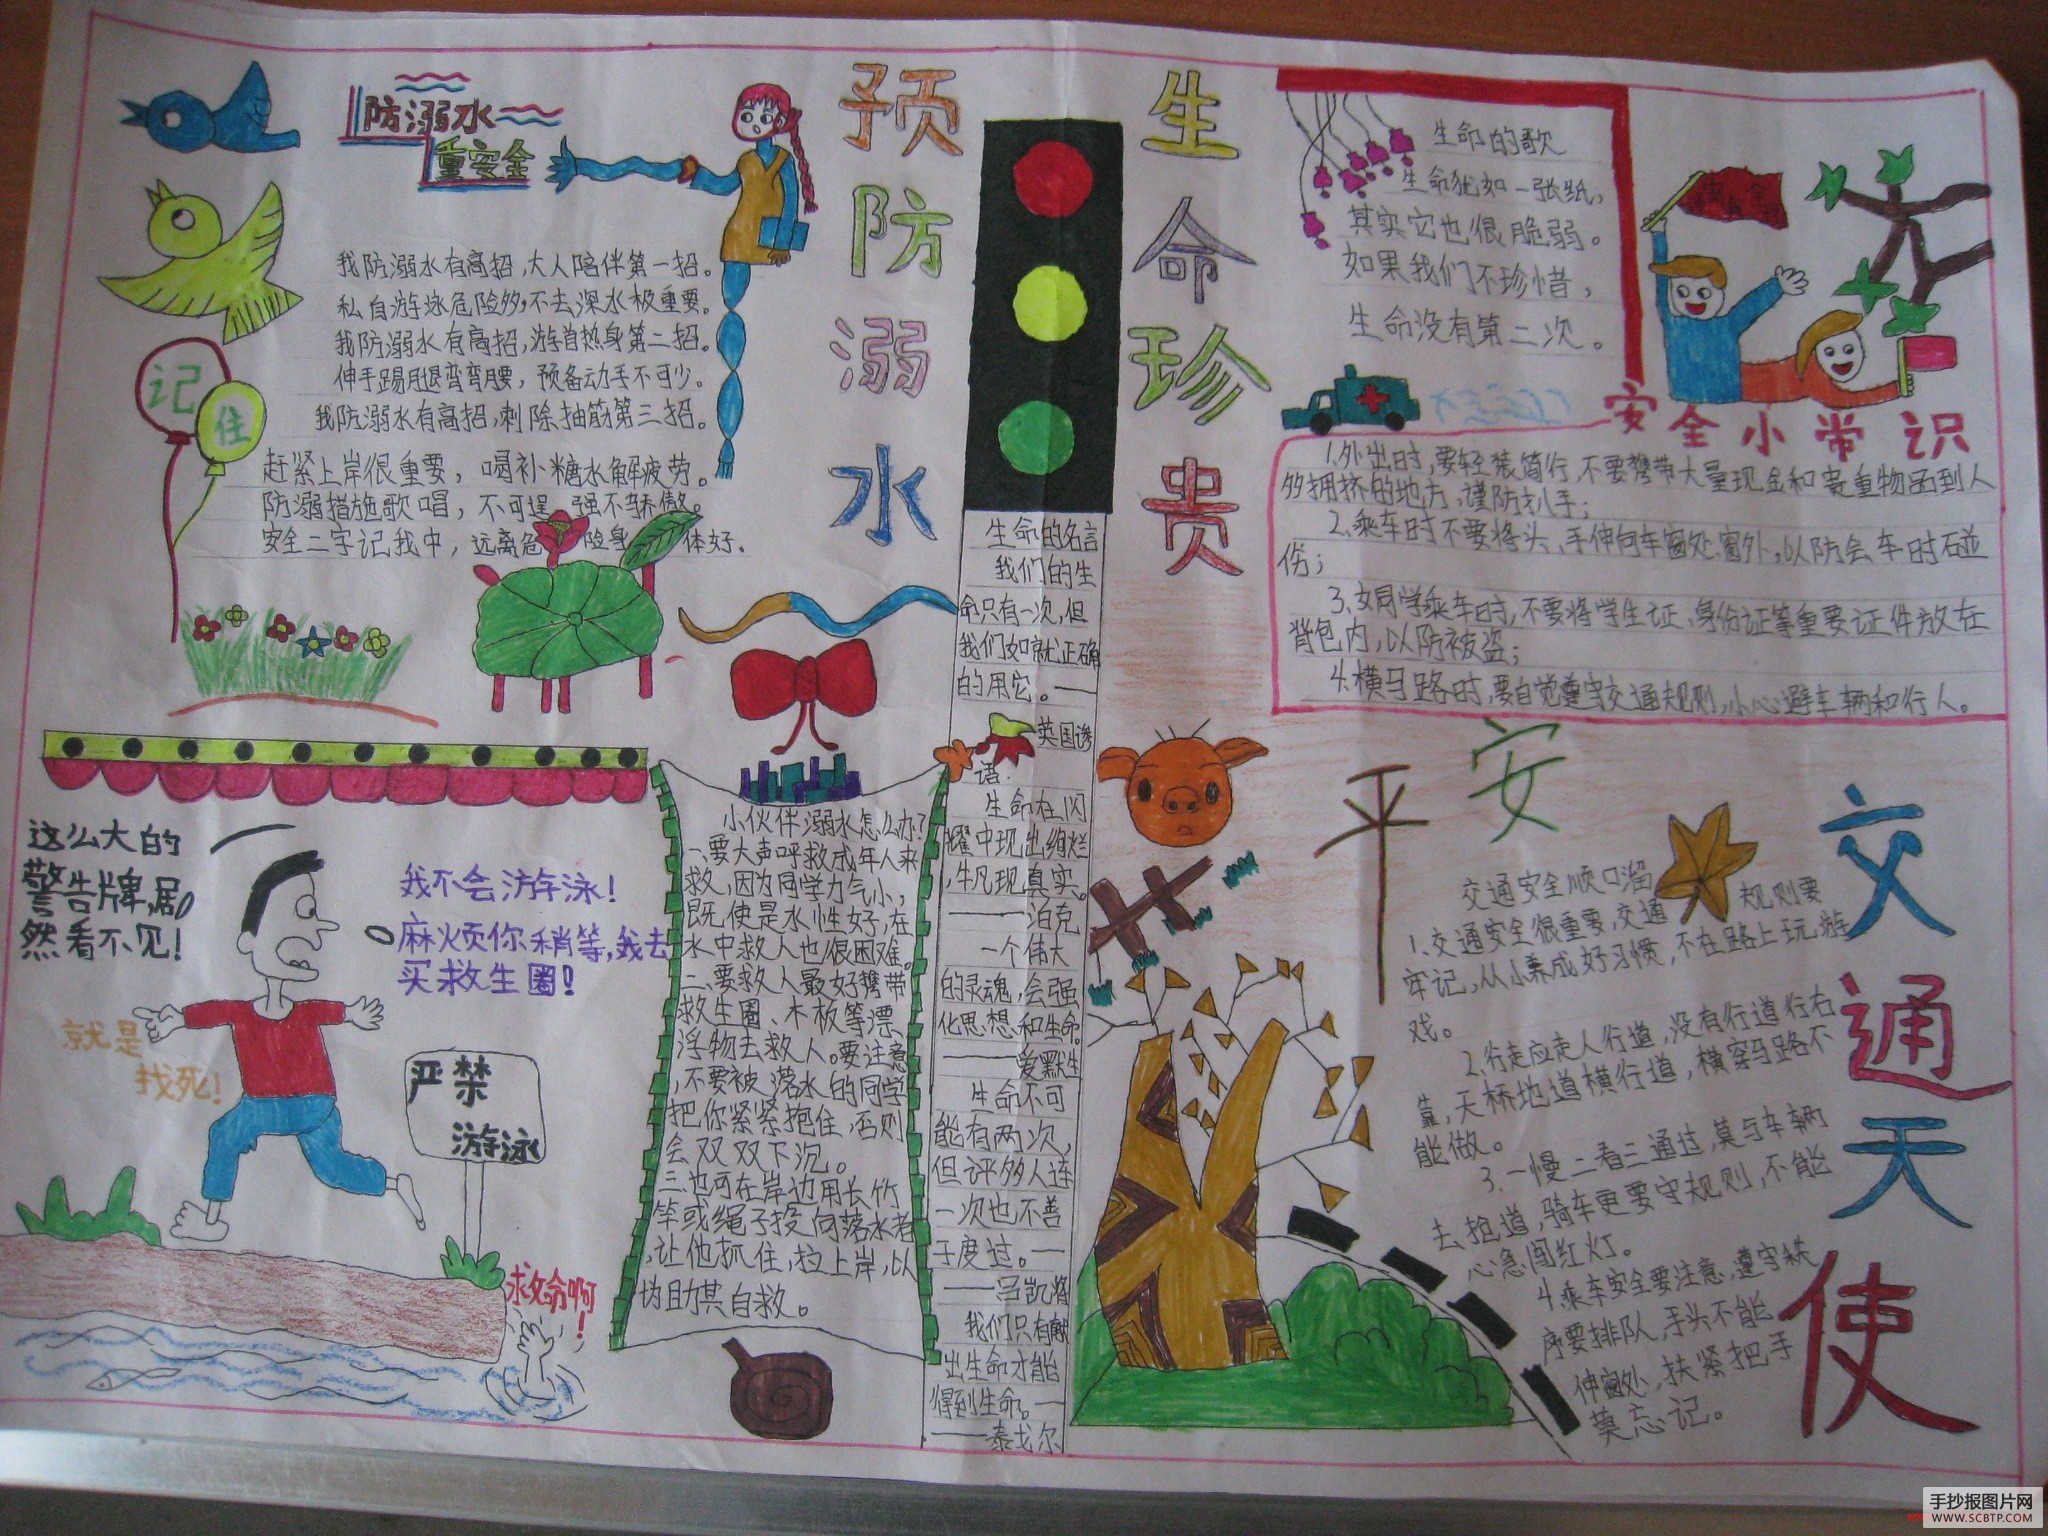 防溺水
重安全
我防溺水有高招,大人陪伴第一招。
私自游泳危险多,不去深水极重要。
我防溺水有高招,游首热身第二招。
伸手踢腿弯弯腰,预备动手不可少。
我防溺水有高招,刺除抽筋第三招。
赶紧上岸很重要,喝补糖水解疲劳。
防溺措施歌唱,不可逞强不骄傲。
安全二字记我中,远离危险身体好.
记
住
预防溺水
生命珍贵
生命的歌
生命犹如一张纸,
其实它也很脆弱。
如果我们不珍惜,
生命没有第二次。
安全小常识
1.外出时,要轻装简行,不要携带大量现金和贵重物品到人
多拥挤的地方,谨防扒手;
2.乘车时不要将头、手伸向车窗处窗外,以防会车时碰
伤;
3.女同学乘车时,不要将学生证、身份证等重要证件放在
背包内,以防被盗;
4.横马路时,要自觉遵守交通规则,小心避车辆和行人。
生命的名言
我们的生
命只有一次,但
我们如就正确
的用它。—
英国谚
语.
生命在闪
耀中现出绚烂
,牛凡现真实。
——泊克
一个伟大
的灵魂,会强
化思想和生命。
——爱默生
生命不可
能有两次,
但评多人连
一次也不善
于度过。—
——吕凯特
我们只有献
出生命才能
得到生命。—
——泰戈尔
这么大的
警告牌,居
然看不见!
我不会游泳!
麻烦你稍等,我去
买救生圈!
就是
找死!
严禁
游泳
救命啊!
小伙伴溺水怎么办?
一、要大声呼救成年人来
救,因为同学力气小,
既使是水性好,在
水中救人也很困难。
二、要救人最好携带
救生圈、木板等漂
浮物去救人。要注意
,不要被落水的同学
把你紧紧抱住,否则
会双双下沉。
三、也可在岸边用长竹
竿或绳子投向落水者
,让他抓住,拉上岸,以
协助其自救。
平安
交通天使
交通安全顺口溜
1.交通安全很重要,交通规则要
牢记,从小养成好习惯,不在路上玩游
戏。
2.行走应走人行道,没有行道行右
靠,天桥地道横行道,横穿马路不
能做。
3.一慢二看三通过,莫与车辆
去抢道,骑车更要守规则,不能
心急闯红灯。
4.乘车安全要注意,遵守秩
序要排队,手头不能
伸窗处,扶紧把手
莫忘记。
手抄报图片网
WWW.SCBTP.COM